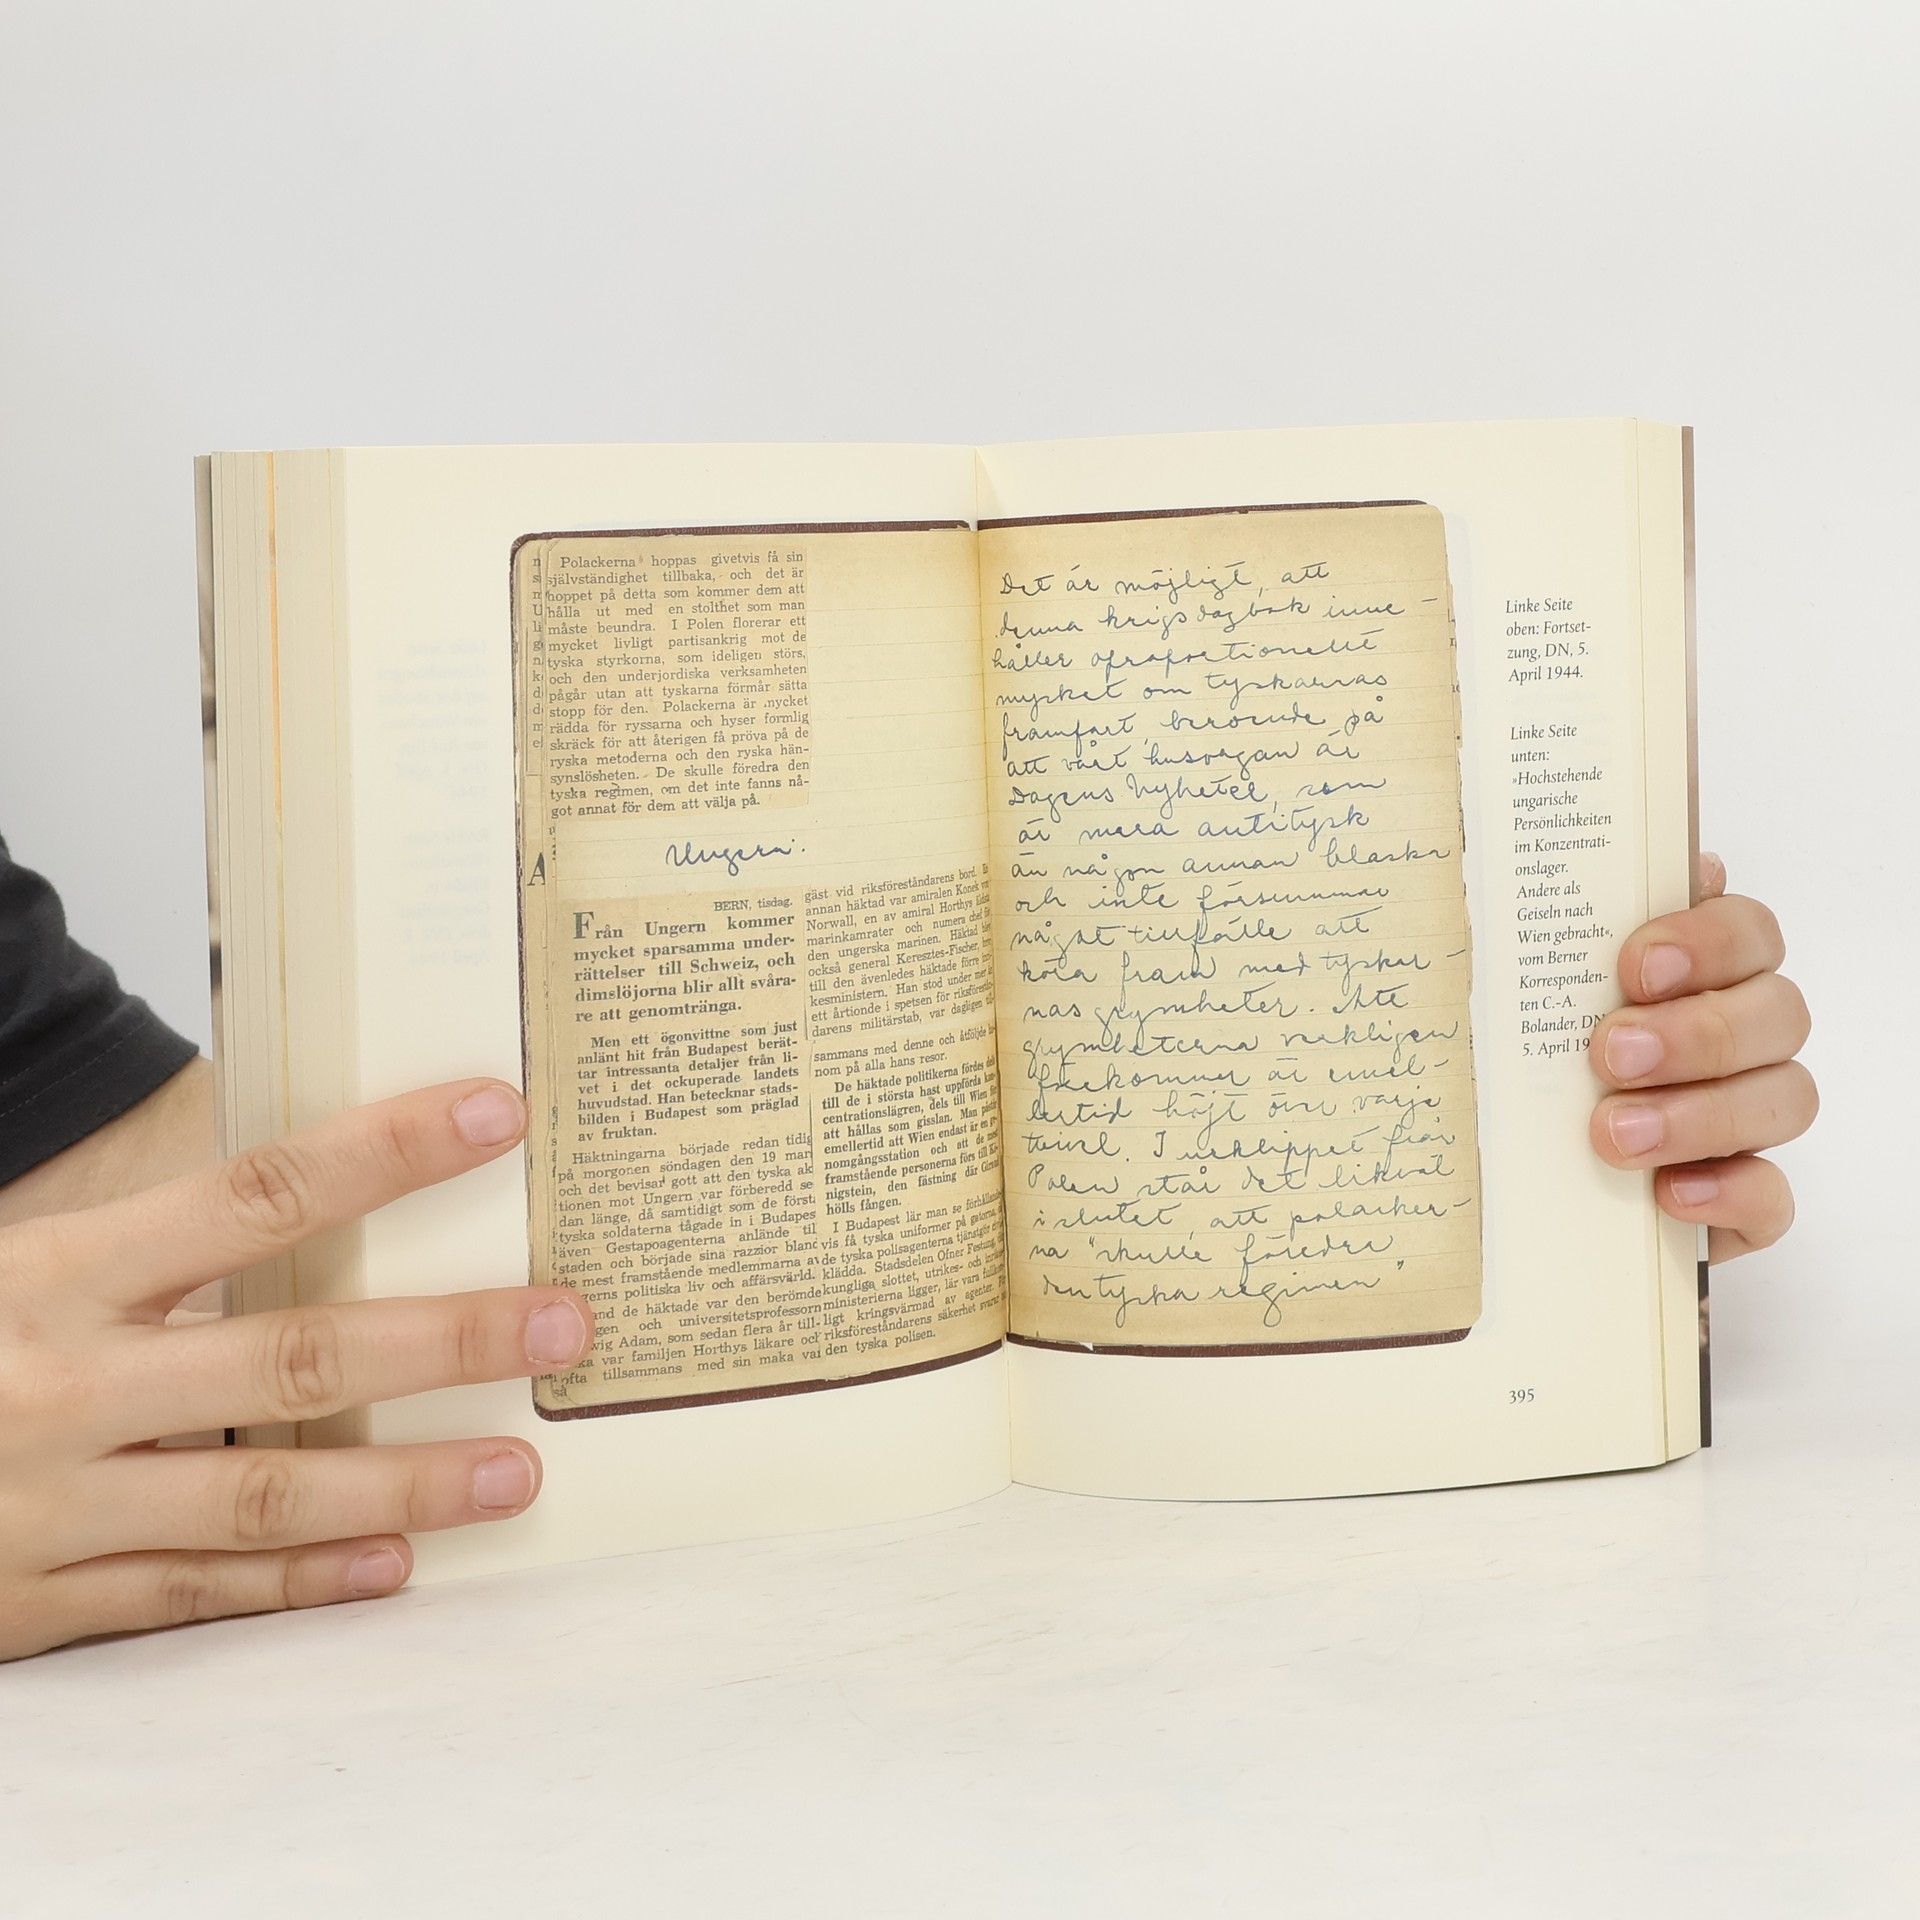 Polackerna hoppas givetvis få sin
självständighet tillbaka, och det är
hoppet på detta som kommer dem att
hålla ut med en stolthet som man
måste beundra. I Polen florerar ett
mycket livligt partisankrig mot de
tyska styrkorna, som ideligen störs,
och den underjordiska verksamheten
pågår utan att tyskarna förmår sätta
stopp för den. Polackerna är mycket
rädda för ryssarna och hyser formlig
skräck för att återigen få pröva på de
ryska metoderna och den ryska hän-
synslösheten. De skulle föredra den
tyska regimen, om det inte fanns nå-
got annat för dem att välja på.
Ungern:
BERN, tisdag.
Från Ungern kommer
mycket sparsamma under-
rättelser till Schweiz, och
dimslöjorna blir allt svåra-
re att genomtränga.
Men ett ögonvittne som just
anlänt hit från Budapest berät-
tar intressanta detaljer från li-
vet i det ockuperade landets
huvudstad. Han betecknar stads-
bilden i Budapest som präglad
av fruktan.
Häktningarna började redan tidig
på morgonen söndagen den 19 mars
och det bevisar gott att den tyska ak
tionen mot Ungern var förberedd se
dan länge, då samtidigt som de första
tyska soldaterna tågade in i Budapes
även Gestapoagenterna anlände til
staden och började sina razzior bland
de mest framstående medlemmarna av
gerns politiska liv och affärsvärld.
and de häktade var den berömde
gen och universitetsprofessorn
wig Adam, som sedan flera år till-
ka var familjen Horthys läkare och
ofta tillsammans med sin maka var
gäst vid riksföreståndarens bord. En
annan häktad var amiralen Konek von
Norwall, en av amiral Horthys äldsta
marinkamrater och numera chef för
den ungerska marinen. Häktad blev
också general Keresztes-Fischer, bror
till den ävenledes häktade förre inri-
kesministern. Han stod under mer än
ett årtionde i spetsen för riksförestån-
darens militärstab, var dagligen till-
sammans med denne och åtföljde ho-
nom på alla hans resor.
De häktade politikerna fördes dels
till de i största hast uppförda kon-
centrationslägren, dels till Wien för
att hållas som gisslan. Man påstår
emellertid att Wien endast är en ge-
nomgångsstation och att de mest
framstående personerna förs till Kö-
nigstein, den fästning där Giraud
hölls fången.
I Budapest lär man se förhållande-
vis få tyska uniformer på gatorna,
de tyska polisagenterna tjänstgör civil-
klädda. Stadsdelen Ofner Festung, där
kungliga slottet, utrikes- och inrikes-
ministerierna ligger, lär vara fullkom-
ligt kringsvärmad av agenter. För
riksföreståndarens säkerhet svarar nu
den tyska polisen.
Det är möjligt, att
denna krigsdagbok inne-
håller oproportionellt
mycket om tyskarnas
framfart, beroende på
att vårt husorgan är
Dagens Nyheter, som
är mera antitysk
än någon annan blaska
och inte försummar
något tillfälle att
köra fram med tyskar-
nas grymheter. Att
grymheterna verkligen
förekommer är emel-
lertid höjt över varje
tvivel. I urklippet från
Polen står det likväl
i slutet, att polacker-
na "skulle föredra
den tyska regimen"
Linke Seite
oben: Fortset-
zung, DN, 5.
April 1944.
Linke Seite
unten:
»Hochstehende
ungarische
Persönlichkeiten
im Konzentrati-
onslager.
Andere als
Geiseln nach
Wien gebracht«,
vom Berner
Korresponden-
ten C.-A.
Bolander, DN
5. April 19
395